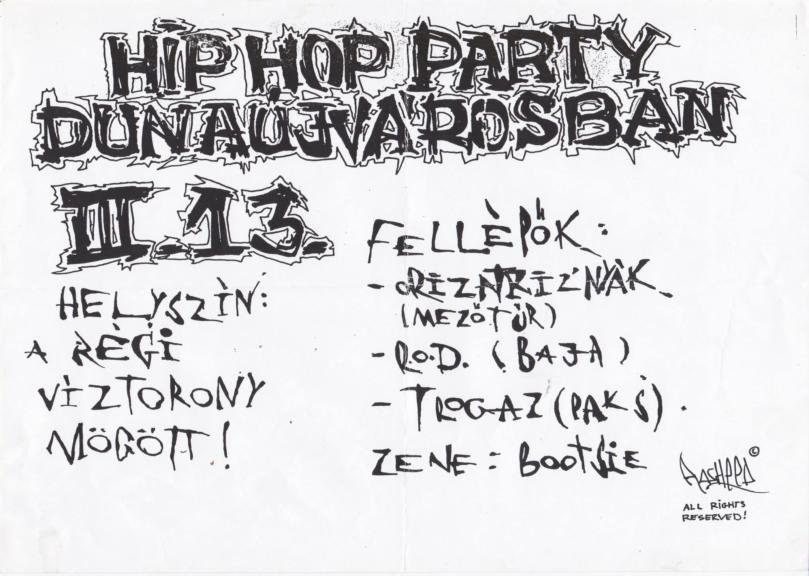 HIP HOP PARTY
DUNAÚJVÁROSBAN
III.13.
HELYSZÍN:
A RÉGI
VÍZTORONY
MÖGÖTT!
FELLÉPŐK:
- (MEZŐTÚR)
- R.O.D. (BAJA)
- TROGAZ (PAKS).
ZENE: BOOTSIE
RASHEED ©
ALL RIGHTS
RESERVED!